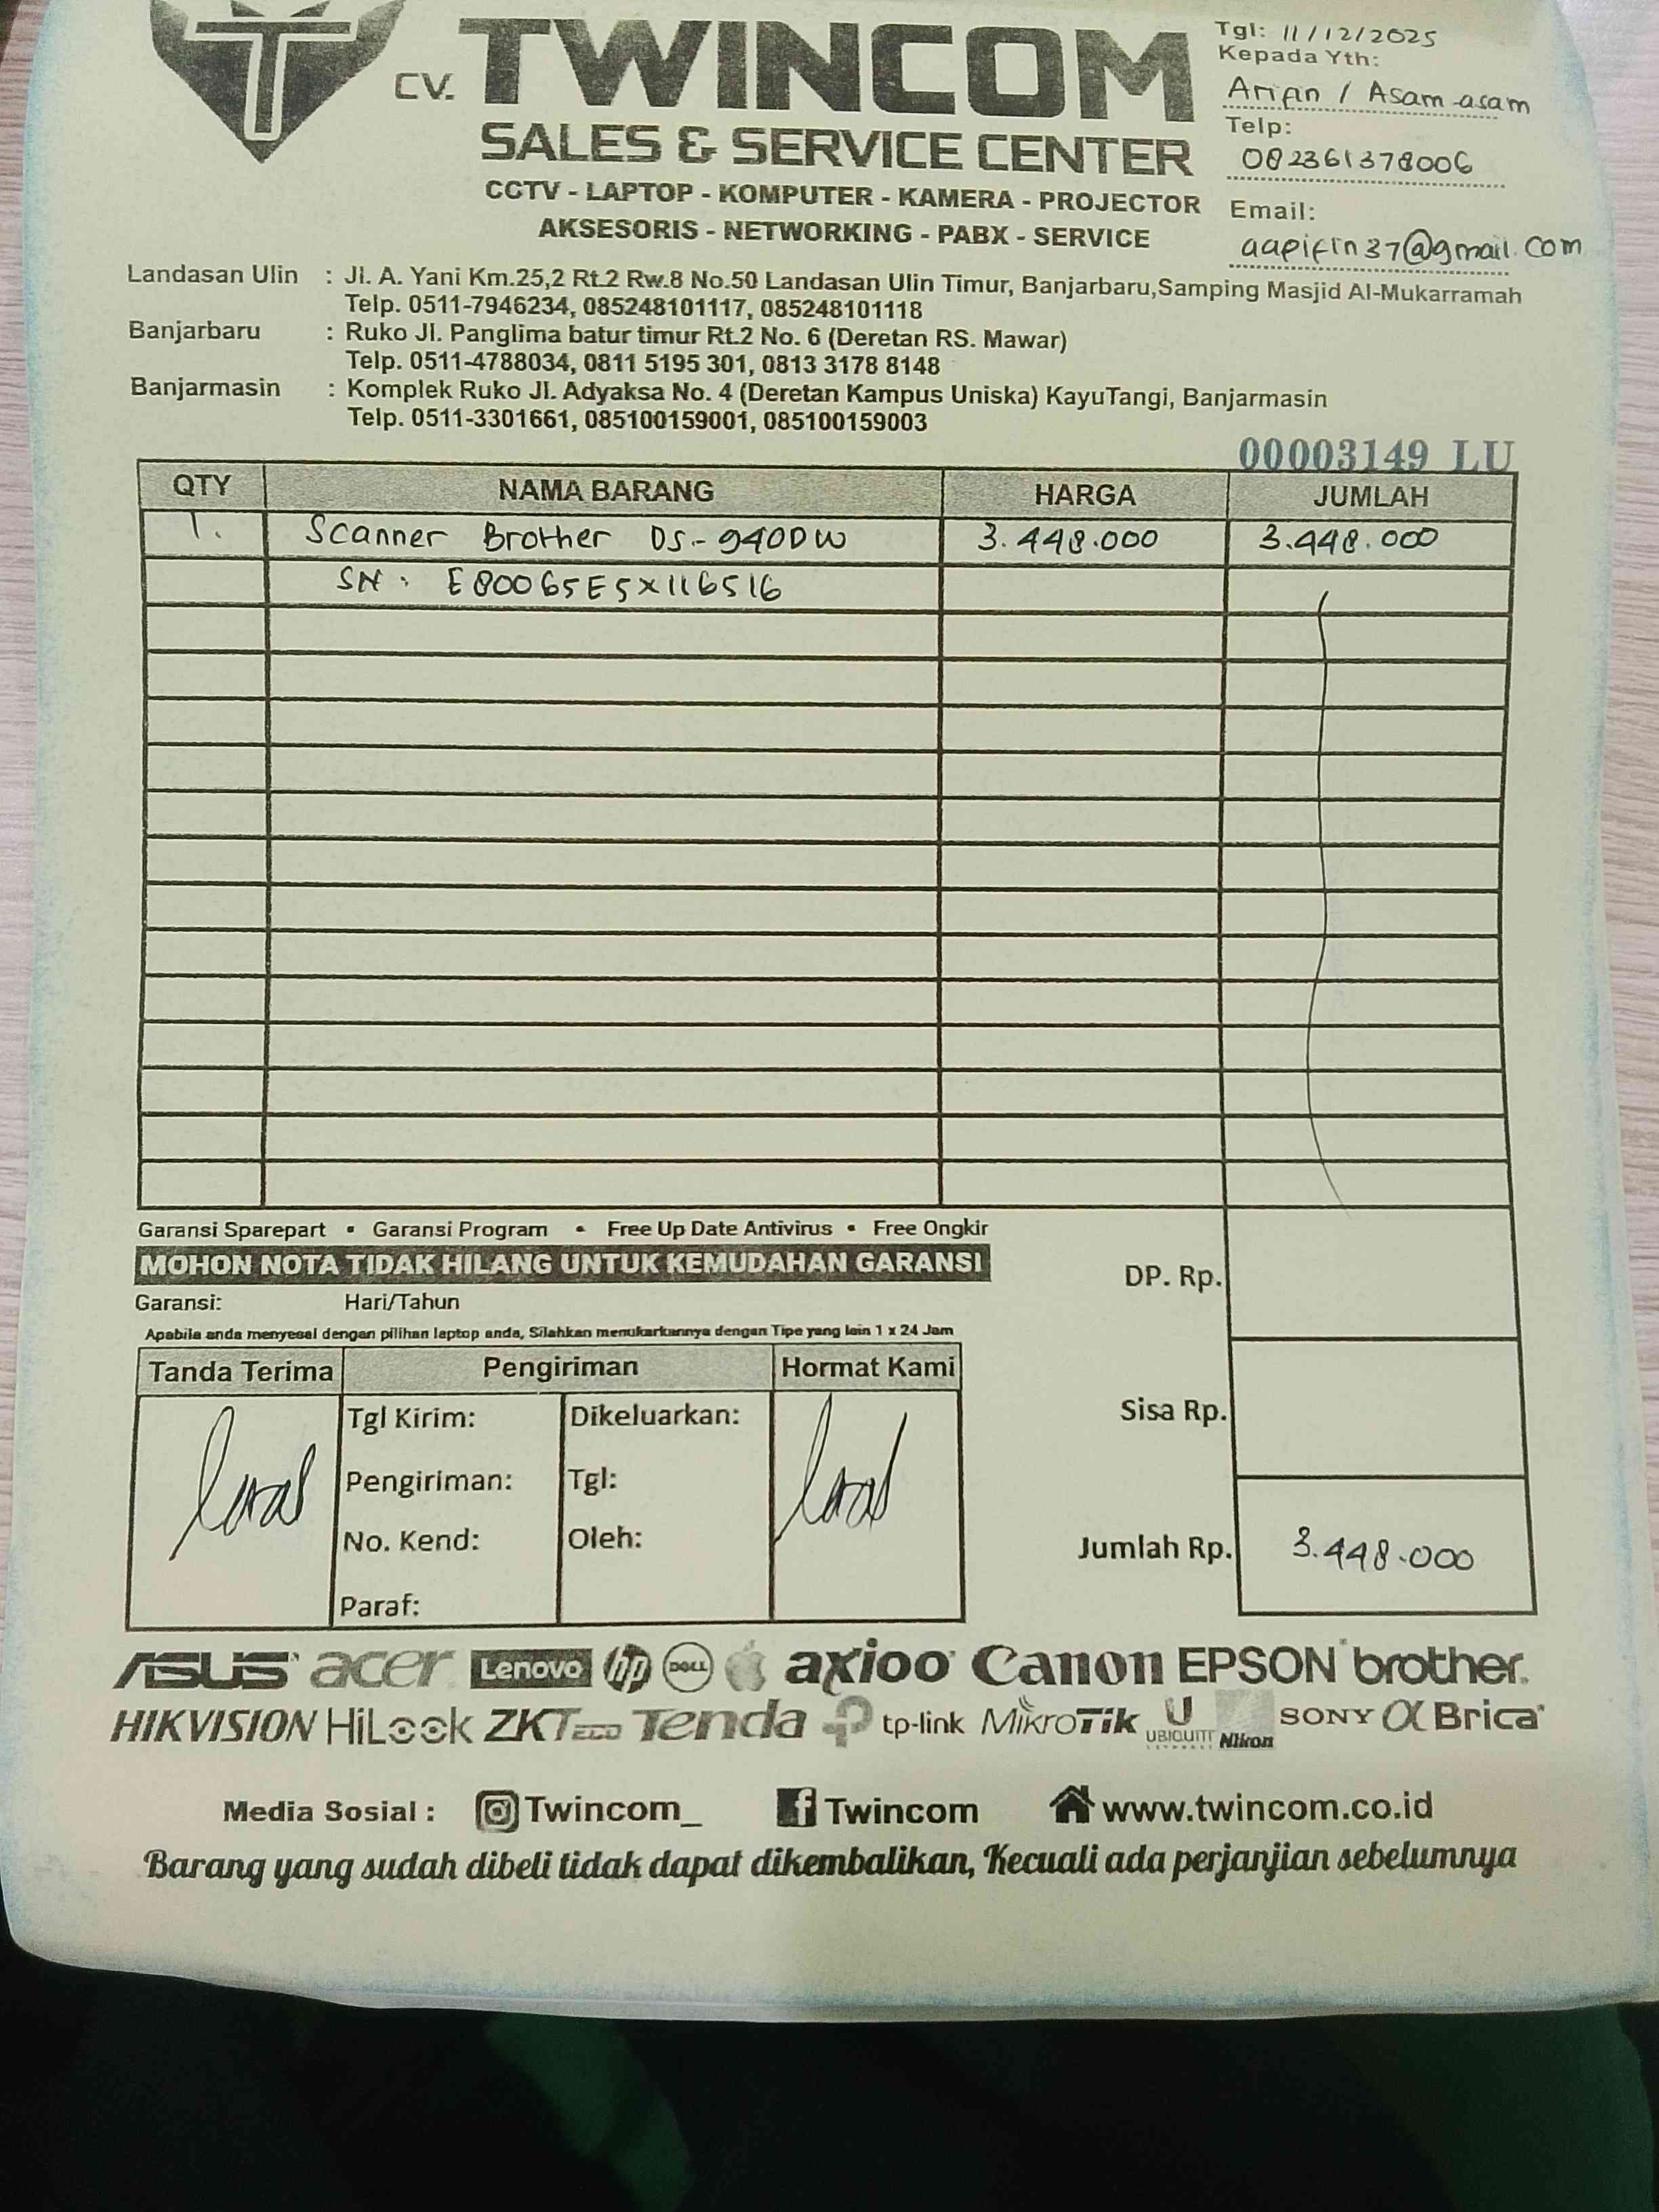 CV. TWINCOM
SALES & SERVICE CENTER
CCTV - LAPTOP - KOMPUTER - KAMERA - PROJECTOR
AKSESORIS - NETWORKING - PABX - SERVICE
Tgl: 11/12/2025
Kepada Yth:
Arifin / Asam-asam
Telp:
082361378006
Email:
aapifin37@gmail.com
Landasan Ulin : Jl. A. Yani Km.25,2 Rt.2 Rw.8 No.50 Landasan Ulin Timur, Banjarbaru,Samping Masjid Al-Mukarramah
Telp. 0511-7946234, 085248101117, 085248101118
Banjarbaru : Ruko Jl. Panglima batur timur Rt.2 No. 6 (Deretan RS. Mawar)
Telp. 0511-4788034, 0811 5195 301, 0813 3178 8148
Banjarmasin : Komplek Ruko Jl. Adyaksa No. 4 (Deretan Kampus Uniska) KayuTangi, Banjarmasin
Telp. 0511-3301661, 085100159001, 085100159003
00003149 LU
QTY NAMA BARANG HARGA JUMLAH
1. Scanner Brother DS-940DW 3.448.000 3.448.000
SN: E80065E5X116516
Garansi Sparepart • Garansi Program • Free Up Date Antivirus • Free Ongkir
MOHON NOTA TIDAK HILANG UNTUK KEMUDAHAN GARANSI
DP. Rp.
Garansi: Hari/Tahun
Apabila anda menyesal dengan pilihan laptop anda, Silahkan menukarkannya dengan Tipe yang lain 1 x 24 Jam
Tanda Terima Pengiriman Hormat Kami
Tgl Kirim: Dikeluarkan:
Sisa Rp.
Pengiriman: Tgl:
No. Kend: Oleh:
Jumlah Rp. 3.448.000
Paraf:
ASUS acer Lenovo hp DELL axioo Canon EPSON brother
HIKVISION HiLook ZKTeco Tenda tp-link MikroTik U UBIQUITI NETWORKS Nikon SONY α Brica
Media Sosial : Twincom_ f Twincom www.twincom.co.id
Barang yang sudah dibeli tidak dapat dikembalikan, Kecuali ada perjanjian sebelumnya